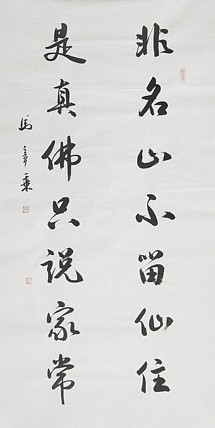 非名山不留仙住
是真佛只说家常